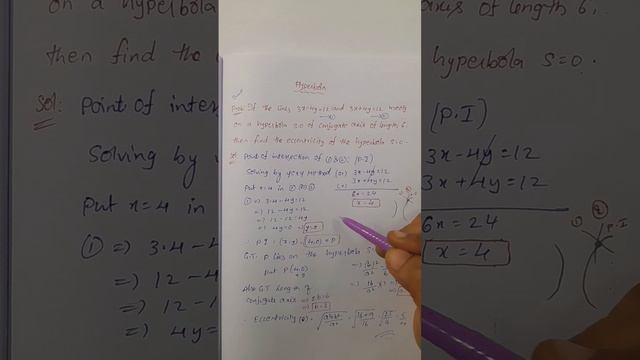 Hyperbola
Prob: If the lines 3x-4y=12 and 3x+4y=12 meets
on a hyperbola S=0 of conjugate axis of length 6.
then find the eccentricity of the hyperbola S=0.
Sol: Point of intersection of ① & ②: (P.I)
Solving by Method (or) 3x-4y=12
3x+4y=12
Put x=4 in ① (or) ②
6x=24
x=4
① ⇒ 3·4-4y=12
⇒ 12-4y=12
⇒ 12-12=4y
⇒ 4y=0 ⇒ y=0
∴ P.I = (x,y) = (4,0) = P
G.T. P lies on the hyperbola S
put P(4,0)
Also G.T length of
conjugate axis ⇒ 2b=6
⇒ b=3
∴ Eccentricity (e) = √(a²+b²/a²) = √(16+9/16) = √(25/16) = 5
on a hyperbola
axis of length 6.
then find the
hyperbola S=0.
Sol: Point of inter
(P.I)
Solving by
3x-4y=12
3x+4y=12
Put x=4 in
6x=24
x=4
① ⇒ 3·4-
⇒ 12-4
⇒ 12-1
⇒ 4y=
① ② P.I